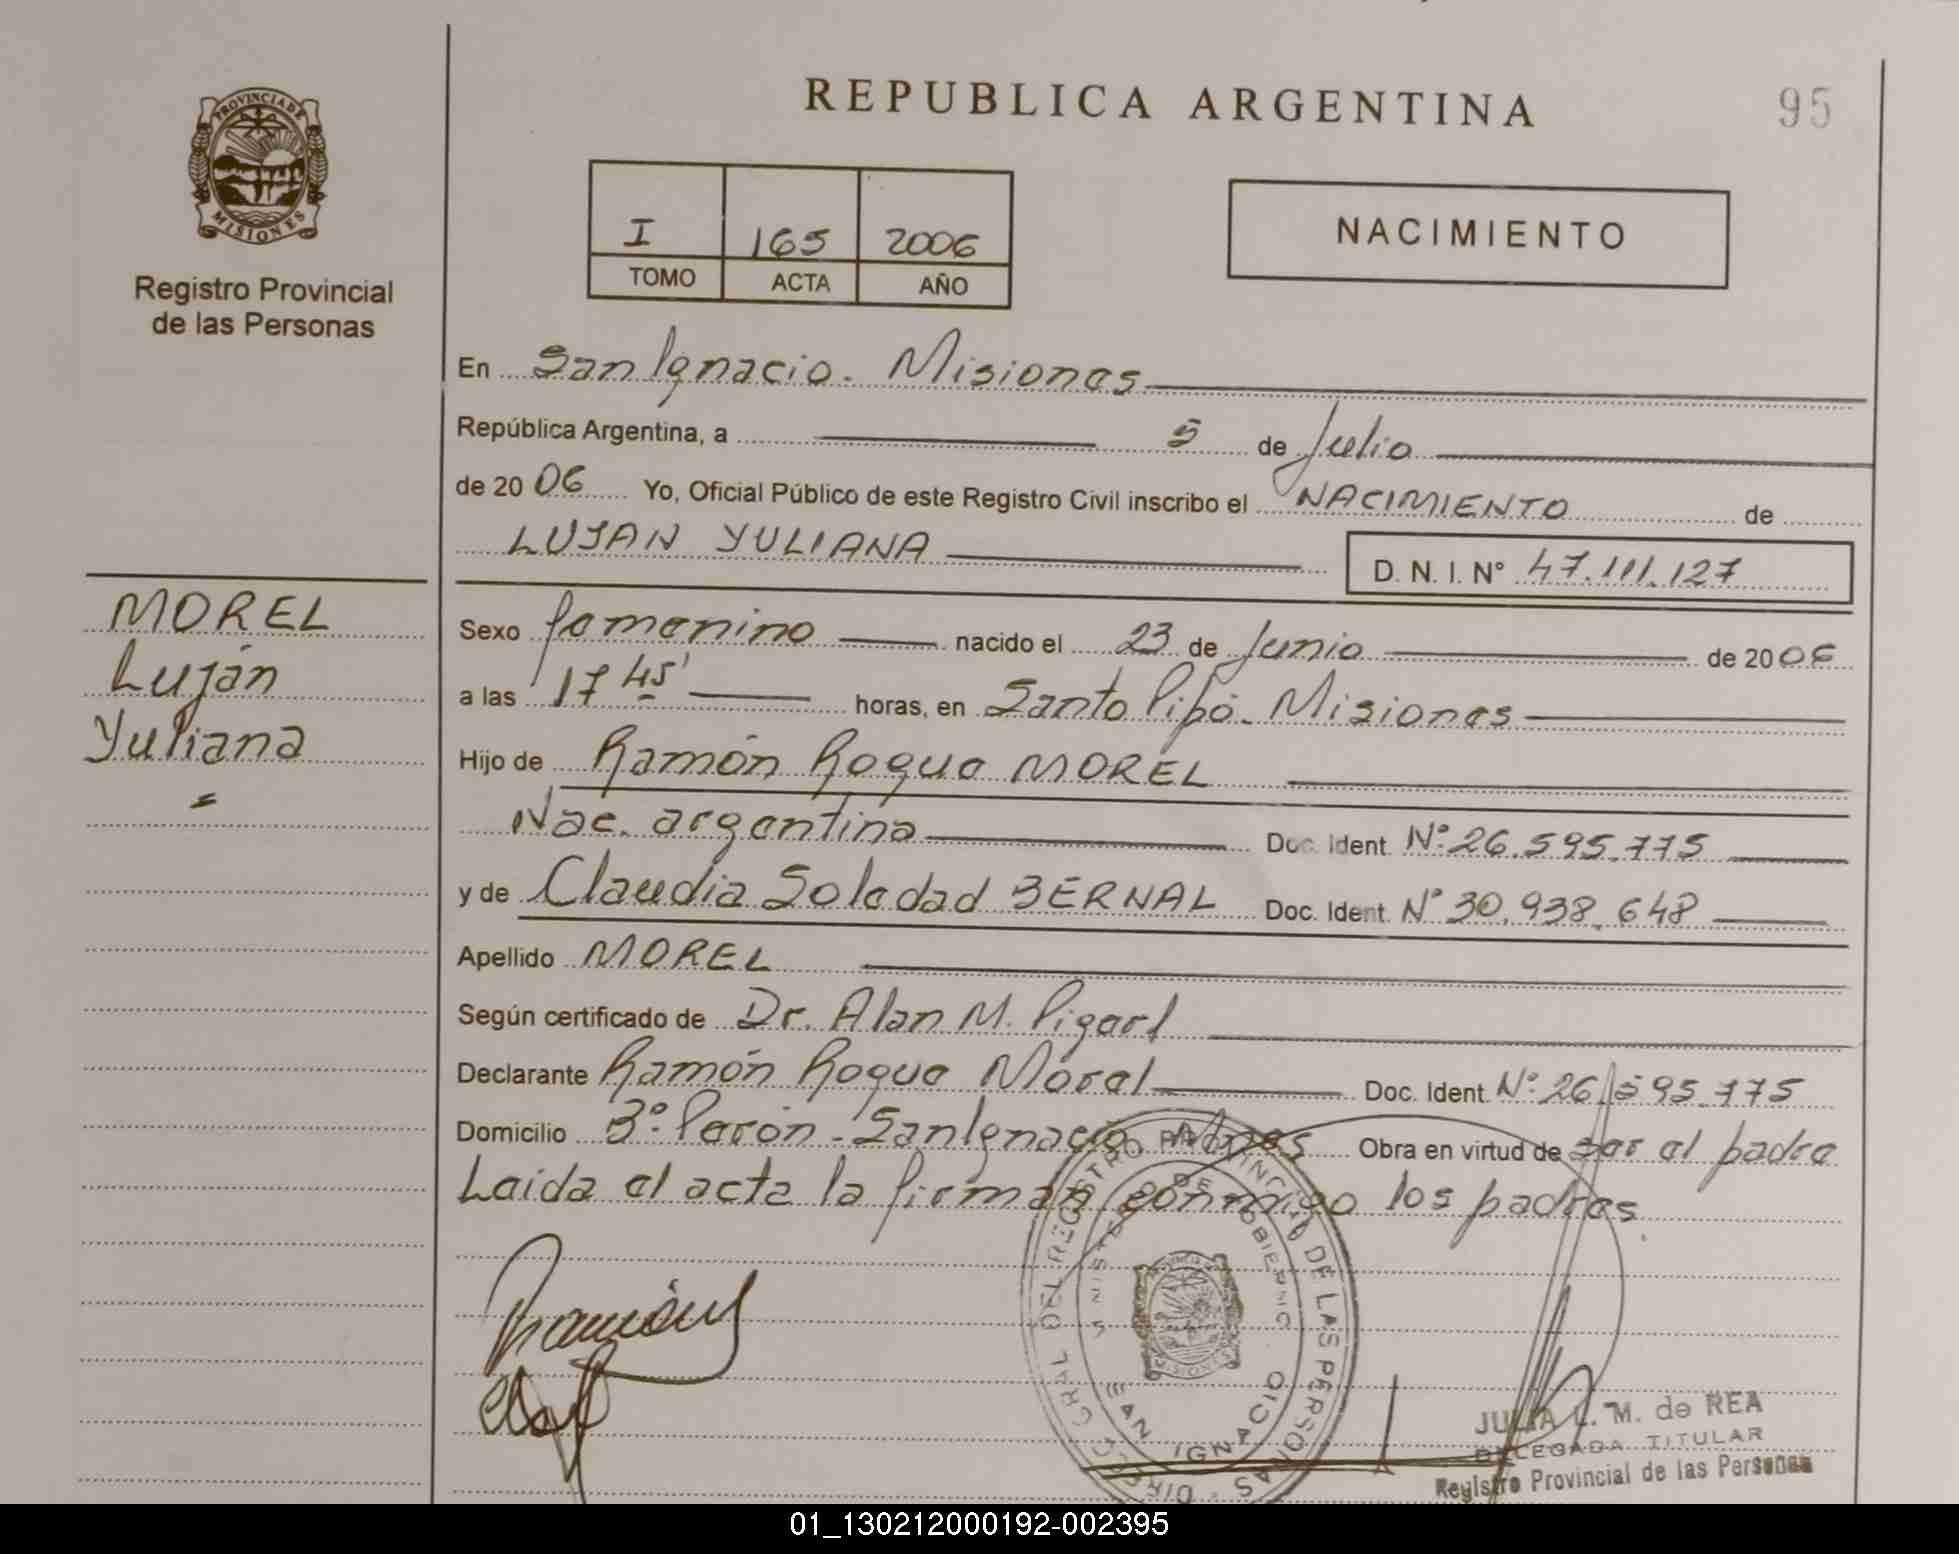 REPUBLICA ARGENTINA
95
PROVINCIA DE
MISIONES
Registro Provincial
de las Personas
I 165 2006
TOMO ACTA AÑO
NACIMIENTO
En San Ignacio. Misiones
República Argentina, a 5 de Julio
de 20 06 Yo, Oficial Público de este Registro Civil inscribo el NACIMIENTO de
LUJAN YULIANA D. N. I. N° 47.111.127
MOREL
Luján
Yuliana
Sexo femenino nacido el 23 de Junio de 20 06
a las 17 45' horas, en Santo Pipó. Misiones
Hijo de Ramón Roque MOREL
Nac. argentina Doc. Ident. N° 26.595.775
y de Claudia Soledad BERNAL Doc. Ident. N° 30.938.648
Apellido MOREL
Según certificado de Dr. Alan M.
Declarante Ramón Roque Morel Doc. Ident. N° 26.595.775
Domicilio B° Perón - San Ignacio Mnes Obra en virtud de ser el padre
Leida el acta la firman conmigo los padres.
DIRECC GRAL DEL REGISTRO PROVINCIAL DE LAS PERSONAS
MINISTERIO DE GOBIERNO
SAN IGNACIO
MISIONES
JULIA L. M. de REA
DELEGADA TITULAR
Registro Provincial de las Personas
01_130212000192-002395